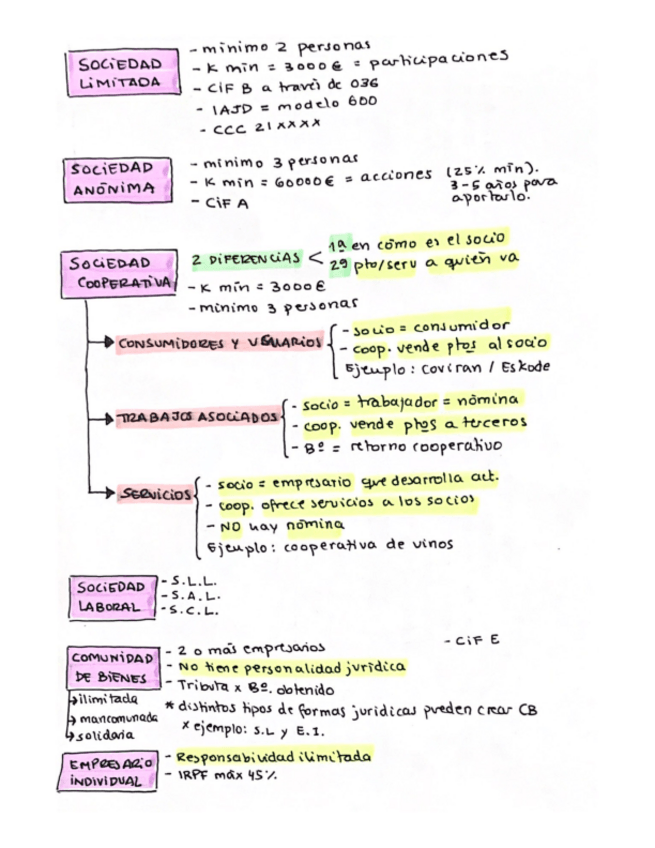 SOCIEDAD LIMITADA
- minimo 2 personas
- K min = 3000€ = participaciones
- CIF B a través de 036
- IAJD = modelo 600
- CCC 21xxxx
SOCIEDAD ANÓNIMA
- minimo 3 personas
- K min = 60000€ = acciones (25% min). 3-5 años para aportarlo.
- CIF A
SOCIEDAD COOPERATIVA
2 DIFERENCIAS <
1ª en cómo es el socio
2ª pto/serv a quién va
- K min = 3000€
- minimo 3 personas
CONSUMIDORES Y USUARIOS
- socio = consumidor
- coop. vende ptos al socio
Ejemplo: Coviran / Eskode
TRABAJOS ASOCIADOS
- socio = trabajador = nómina
- coop. vende ptos a terceros
- Bº = retorno cooperativo
SERVICIOS
- socio = empresario que desarrolla act.
- coop. ofrece servicios a los socios
- NO hay nómina
Ejemplo: cooperativa de vinos
SOCIEDAD LABORAL
- S.L.L.
- S.A.L.
- S.C.L.
COMUNIDAD DE BIENES
- 2 o más empresarios
- CIF E
- No tiene personalidad jurídica
- Tributa x Bº. obtenido
ilimitada
mancomunada
solidaria
* distintos tipos de formas juridicas pueden crear CB
x ejemplo: S.L y E.I.
EMPRESARIO INDIVIDUAL
- Responsabilidad ilimitada
- IRPF máx 45%